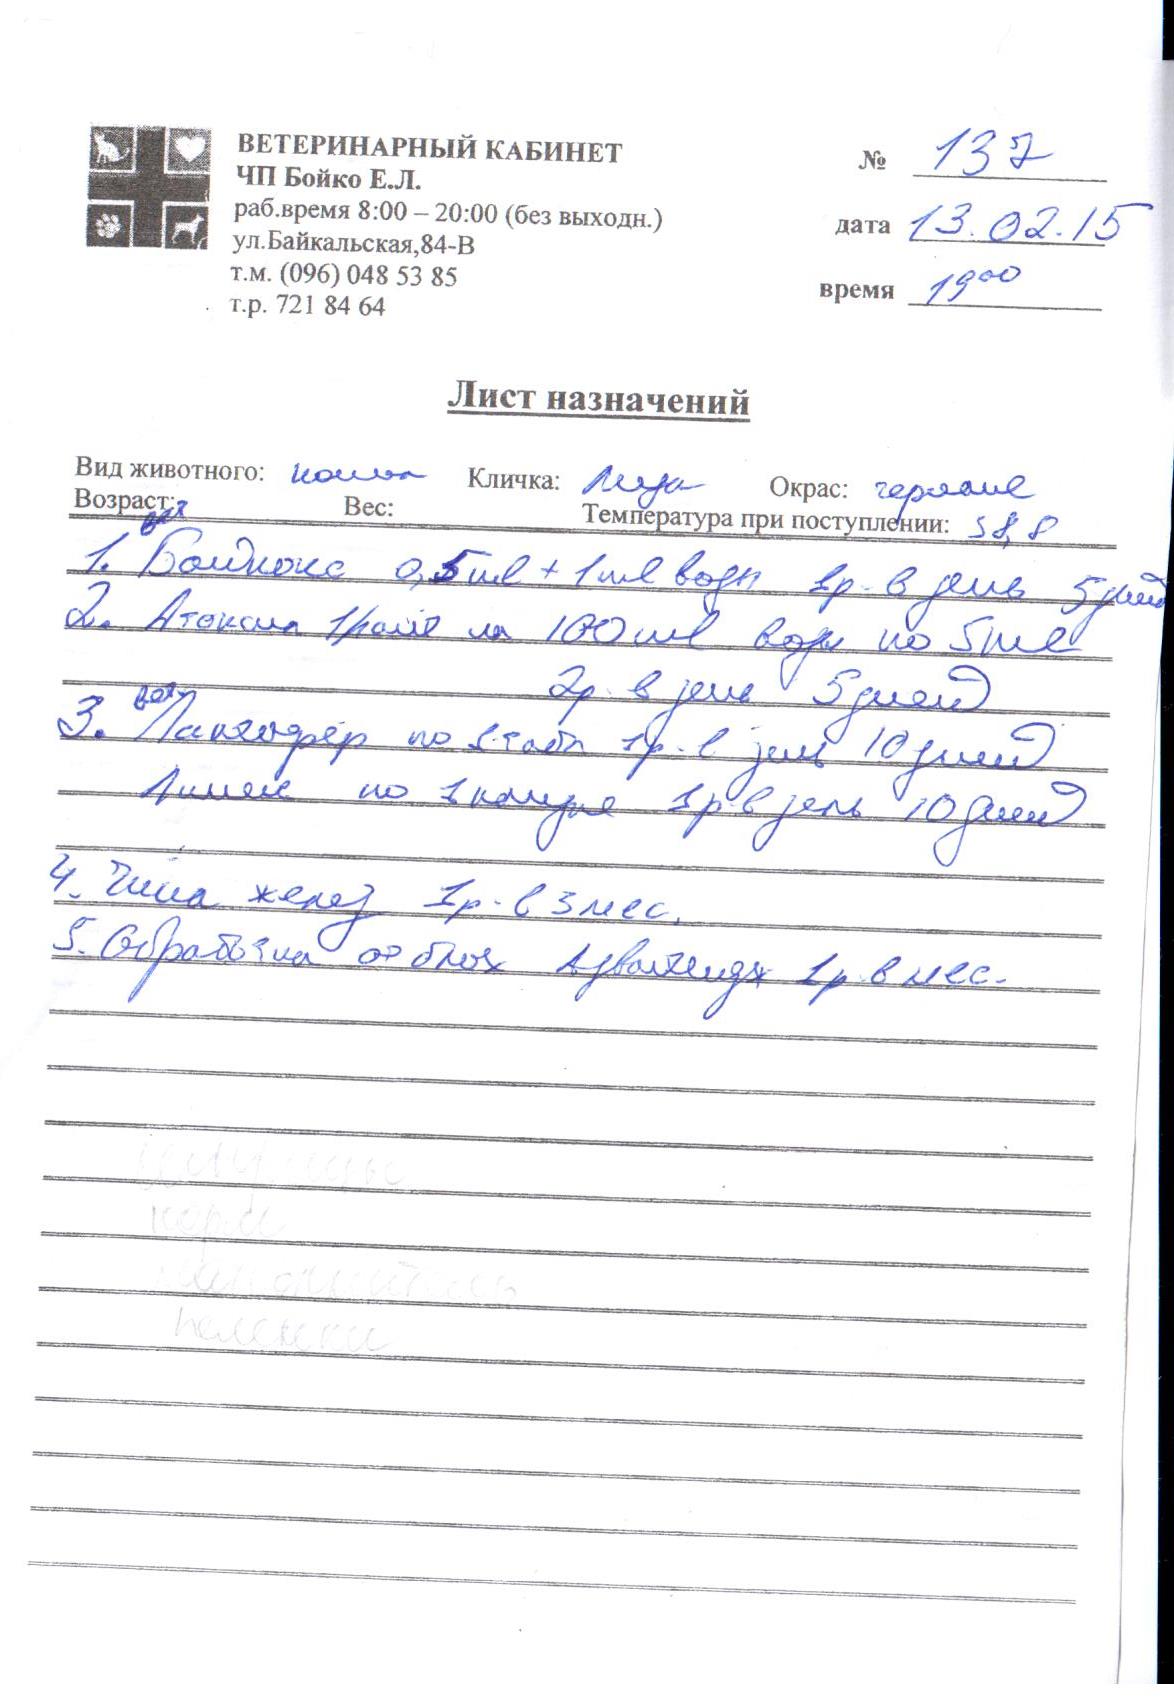 ВЕТЕРИНАРНЫЙ КАБИНЕТ
ЧП Бойко Е.Л.
раб.время 8:00 – 20:00 (без выходн.)
ул.Байкальская,84-В
т.м. (096) 048 53 85
т.р. 721 84 64
№ 137
дата 13.02.15
время 19⁰⁰
Лист назначений
Вид животного: кошка Кличка: Окрас:
Возраст: Вес: Температура при поступлении: 38,8
1. Байкокс 0,5 мл + 1 мл воды 1р. в день 5 дней
2. Атоксил 1 на 100 мл воды по 5 мл
2р. в день 5 дней
3. Лактофер по 1 табл 1р. в день 10 дней
по 1 1р. в день 10 дней
4. желез 1р. в 3 мес.
5. Обработка от блох Адвантейдж 1р. в мес.
корм
наполнитель
пеленки